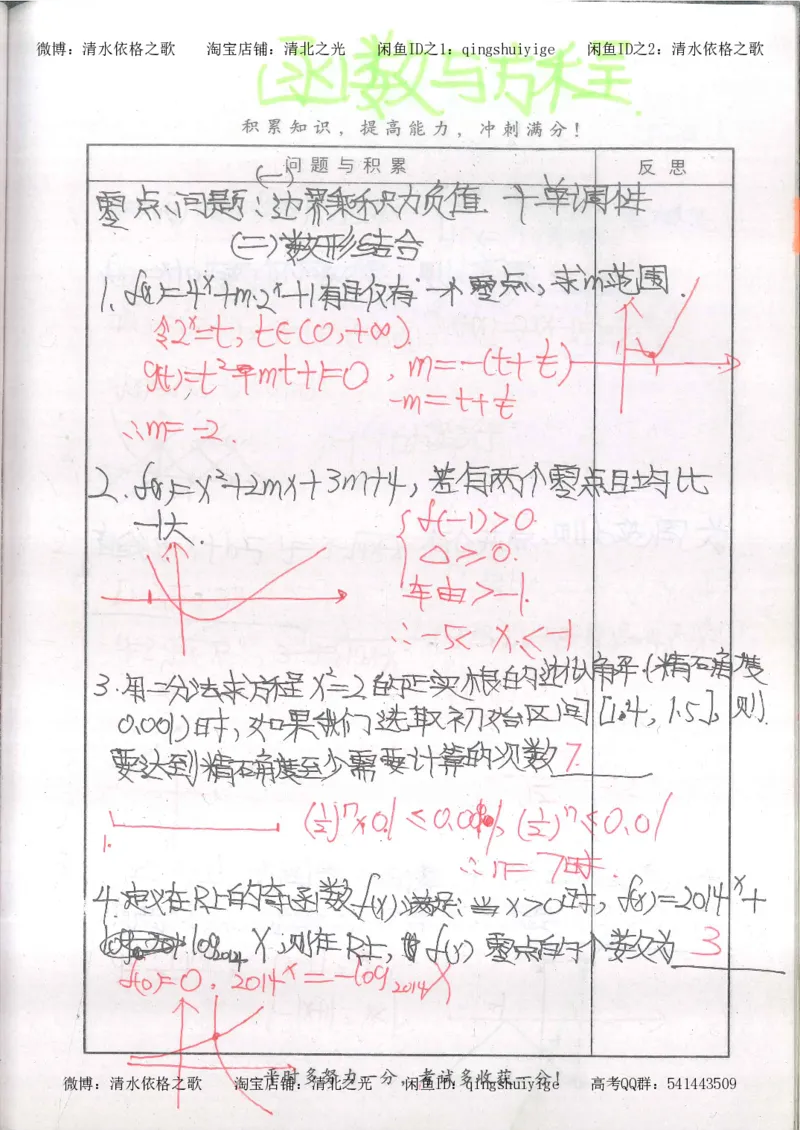 微博：清水依格之歌 淘宝店铺：清北之光 闲鱼ID之1：qingshuiyige 闲鱼ID之2：清水依格之歌
函数与方程.
积累知识，提高能力，冲刺满分！
问题与积累 反思
(一)
零点问题：边界乘积为负值 + 单调性
(二)数形结合
1. f(x)=4^x+m·2^x+1有且仅有一个零点，求m范围.
令2^x=t, t∈(0,+∞).
g(t)=t²+mt+1=0 , m=-(t+1/t)
-m=t+1/t
∴m=-2.
1
2. f(x)=x²+2mx+3m+4, 若有两个零点且均比
-1大.
f(-1)>0.
△≥0.
车由>-1.
∴-5<x≤-1
3. 用二分法求方程x²=2的正实根的近似解(精确度
0.001)时, 如果我们选取初始区间[1.4, 1.5], 则
要达到精确度至少需要计算的次数 7.
(1/2)^n×0.1≤0.001, (1/2)^n≤0.01
1.
∴n=7时.
4. 定义在R上的奇函数f(x)满足：当x>0时, f(x)=2014^x+
log₂₀₁₄x, 则在R上, f(x)零点的个数为 3
f(0)=0. 2014^x=-log₂₀₁₄x
平时多努力一分，考试多收获一分！
微博：清水依格之歌 淘宝店铺：清北之光 闲鱼ID：qingshuiyige 高考QQ群：541443509